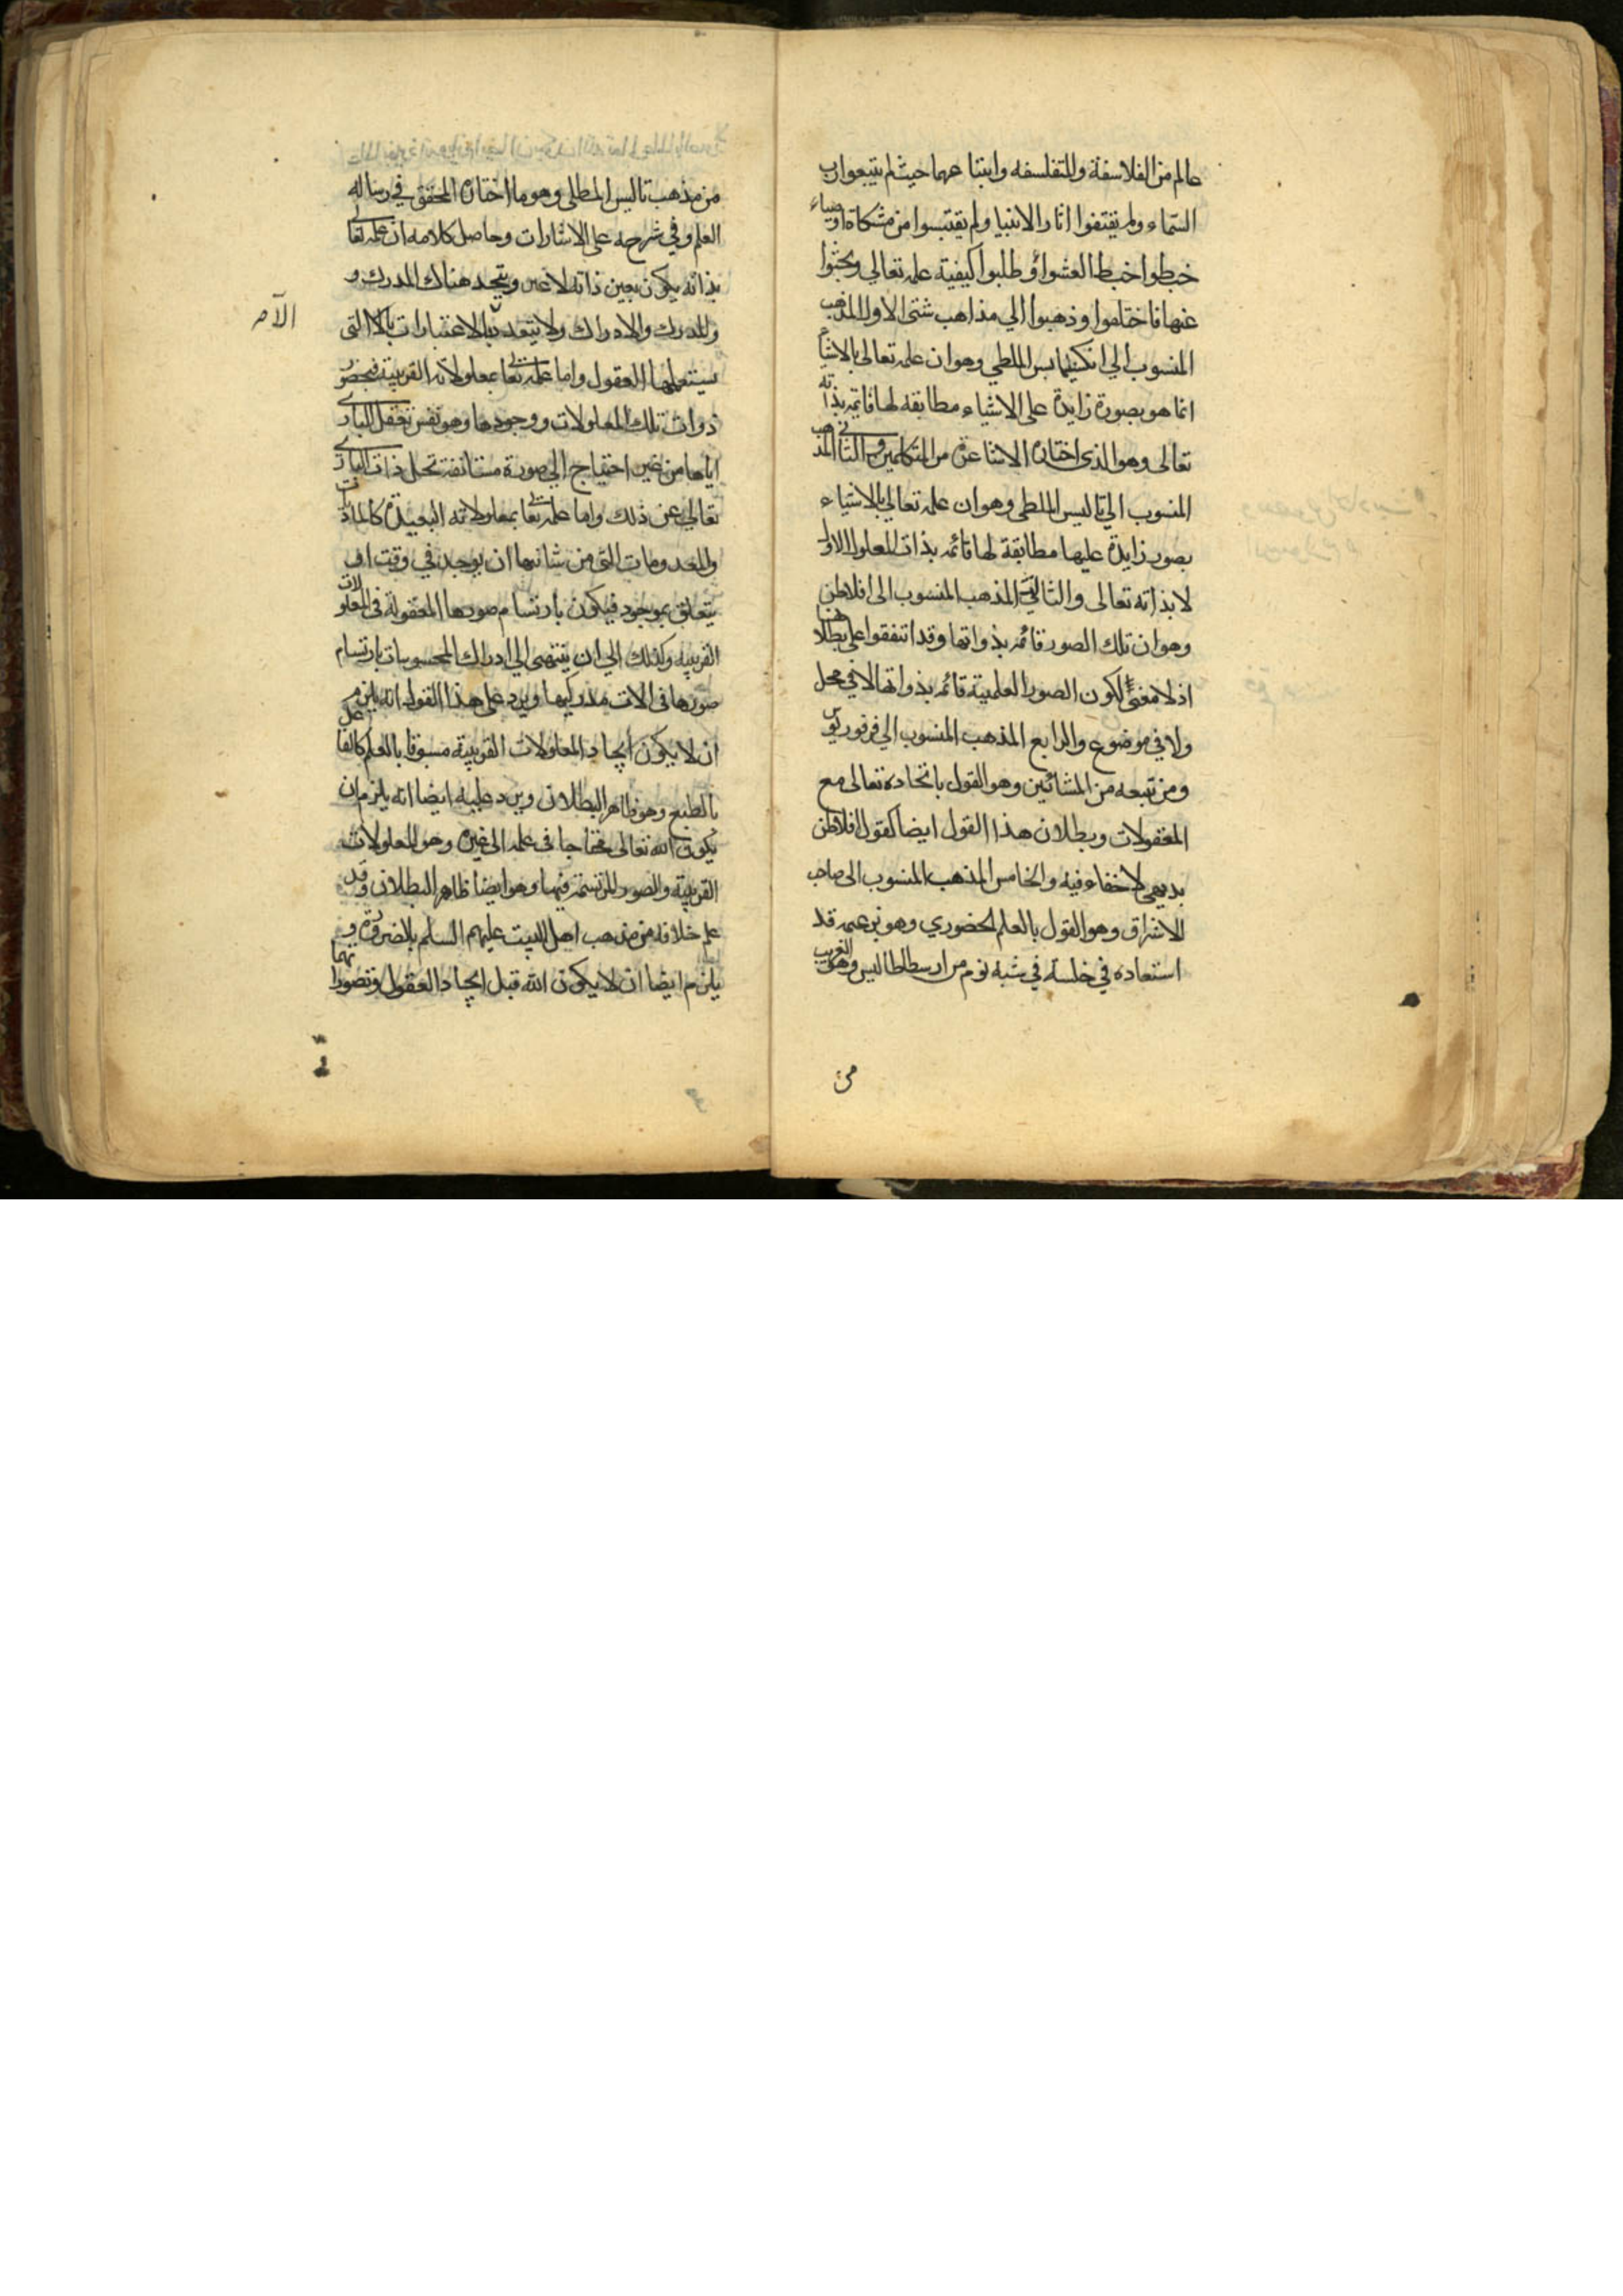 عالم من الفلاسفة والمتفلسفه واتباعهما حيث لم يتبعوا رب
السماء ولم يقتفوا اثار الانبيا ولم يقتبسوا من مشكاة اوصياء
خبطوا خبط العشواء وطلبوا كيفية علمه تعالي وبحثوا
عنها فاختلفوا وذهبوا الي مذاهب شتى الاول المذهب
المنسوب الي انكسيمايس الملطي وهو ان علمه تعالى بالاشياء
انما هو بصورة زايدة على الاشياء مطابقه لها قايمه بذاته
تعالى وهو الذى اختاره الاشاعرة من المتكلمين والثاني المذهب
المنسوب الي ثاليس الملطي وهو ان علمه تعالي بالاشياء
بصور زايدة عليها مطابقة لها قائمه بذات المعلول الاول
لا بذاته تعالى والثالث المذهب المنسوب الى افلاطن
وهو ان تلك الصور قائمه بذواتها وقد اتفقوا على بطلانه
اذ لا معنى لكون الصور العلمية قائمه بذواتها لا في محل
ولا في موضوع والرابع المذهب المنسوب الي فرفوريوس
ومن تبعه من المشائين وهو القول باتحاده تعالى مع
المعقولات وبطلان هذا القول ايضا كقول افلاطن
بديهي لا خفاء فيه والخامس المذهب المنسوب الى صاحب
الاشراق وهو القول بالعلم الحضوري وهو بزعمه قد
استعاده في خلسة في شبه نوم من ارسطاطاليس وهو القريب
من
من مذهب ثاليس الملطي وهو ما اختاره المحقق في رسالة
العلم وفي شرحه على الاشارات وحاصل كلامه ان علمه تعالى
بذاته يكون بعين ذاته لا غير ويتحد هناك المدرك و
والمدرك والادراك ولا يتعدد الا بالاعتبارات التى
يستعملها العقول واما علمه تعالى بمعلولاته القريبة فبحضور
ذوات تلك المعلولات ووجودها وهو نفس تعقل الباري
اياها من غير احتياج الي صورة مستانفة تحل ذات الباري
تعالي عن ذلك واما علمه تعالى بمعلولاته البعيدة كالماديات
والمعدومات التي من شانها ان يوجد في وقت او
يتعلق بموجود فيكون بارتسام صورها المعقولة في المعلولات
القريبه وكذلك الي ان ينتهى الي ادراك المحسوسات بارتسام
صورها في الات مدركيها ويرد على هذا القول انه يلزم
ان لا يكون ايجاد المعلولات القريبة مسبوقا بالعلم كالفاعل
بالطبع وهو ظاهر البطلان ويرد عليه ايضا انه يلزم ان
يكون الله تعالى محتاجا فى علمه الى غيره وهو المعلولات
القريبة والصور المرتسمه فيها وهو ايضا ظاهر البطلان وقد
علم خلافه من مذهب اهل البيت عليهم السلم بالضرورة و
يلزم ايضا ان لا يكون الله قبل ايجاد العقول وتصوراتهما